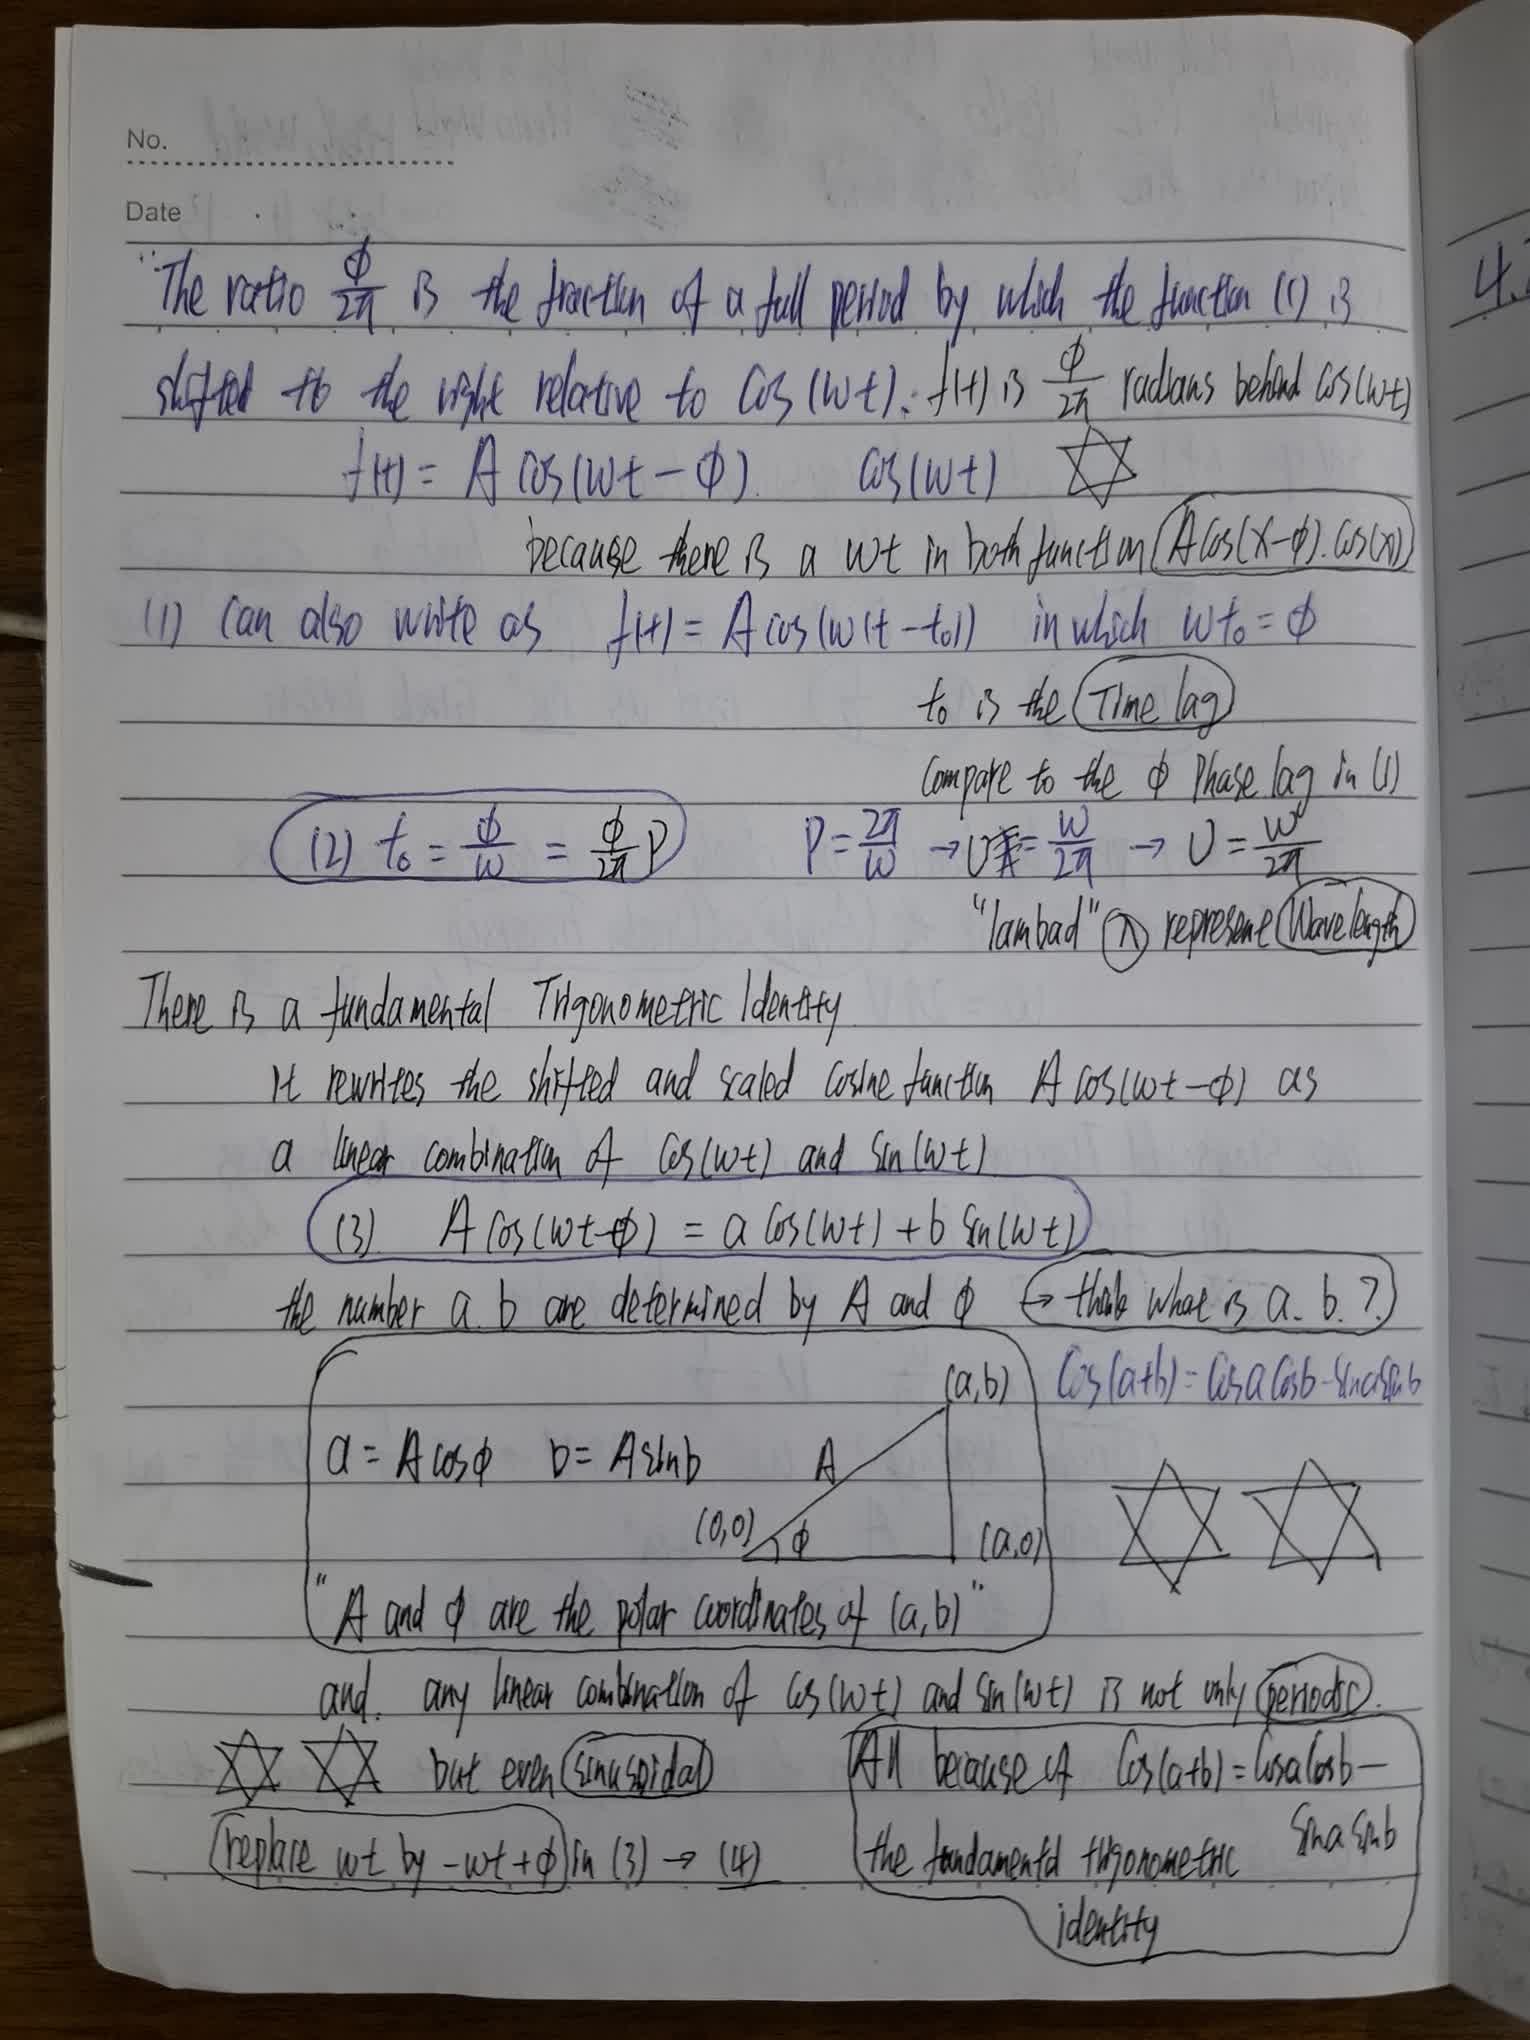 No.
Date
"The ratio ϕ/2π is the fraction of a full period by which the function (1) is
shifted to the right relative to Cos(wt). f(t) is ϕ/2π radians behind cos(wt)
f(t) = A cos(wt - ϕ). cos(wt)
because there is a wt in both function A cos(x-ϕ). cos(x)
(1) can also write as f(t) = A cos(w(t-t₀)) in which wt₀ = ϕ
t₀ is the Time lag
Compare to the ϕ Phase lag in (1)
(2) t₀ = ϕ/w = ϕ/2π P P = 2π/w → υ = w/2π → υ = w/2π
"lambad" λ represent Wavelength
There is a fundamental Trigonometric Identity
It rewrites the shifted and scaled cosine function A cos(wt-ϕ) as
a linear combination of Cos(wt) and sin(wt)
(3) A cos(wt-ϕ) = a cos(wt) + b sin(wt)
the number a. b are determined by A and ϕ ↪ think what is a. b. ?
(a,b) Cos(a+b) = cosa cosb - sina sinb
a = A cosϕ b = A sinb A
(0,0) ϕ (a,0)
"A and ϕ are the polar coordinates of (a,b)"
and. any linear combination of cos(wt) and sin(wt) is not only periodic.
but even sinusoidal All because of Cos(a+b) = cosa cosb -
sina sinb
replace wt by -wt+ϕ in (3) → (4) the fundamental trigonometric
identity
4.